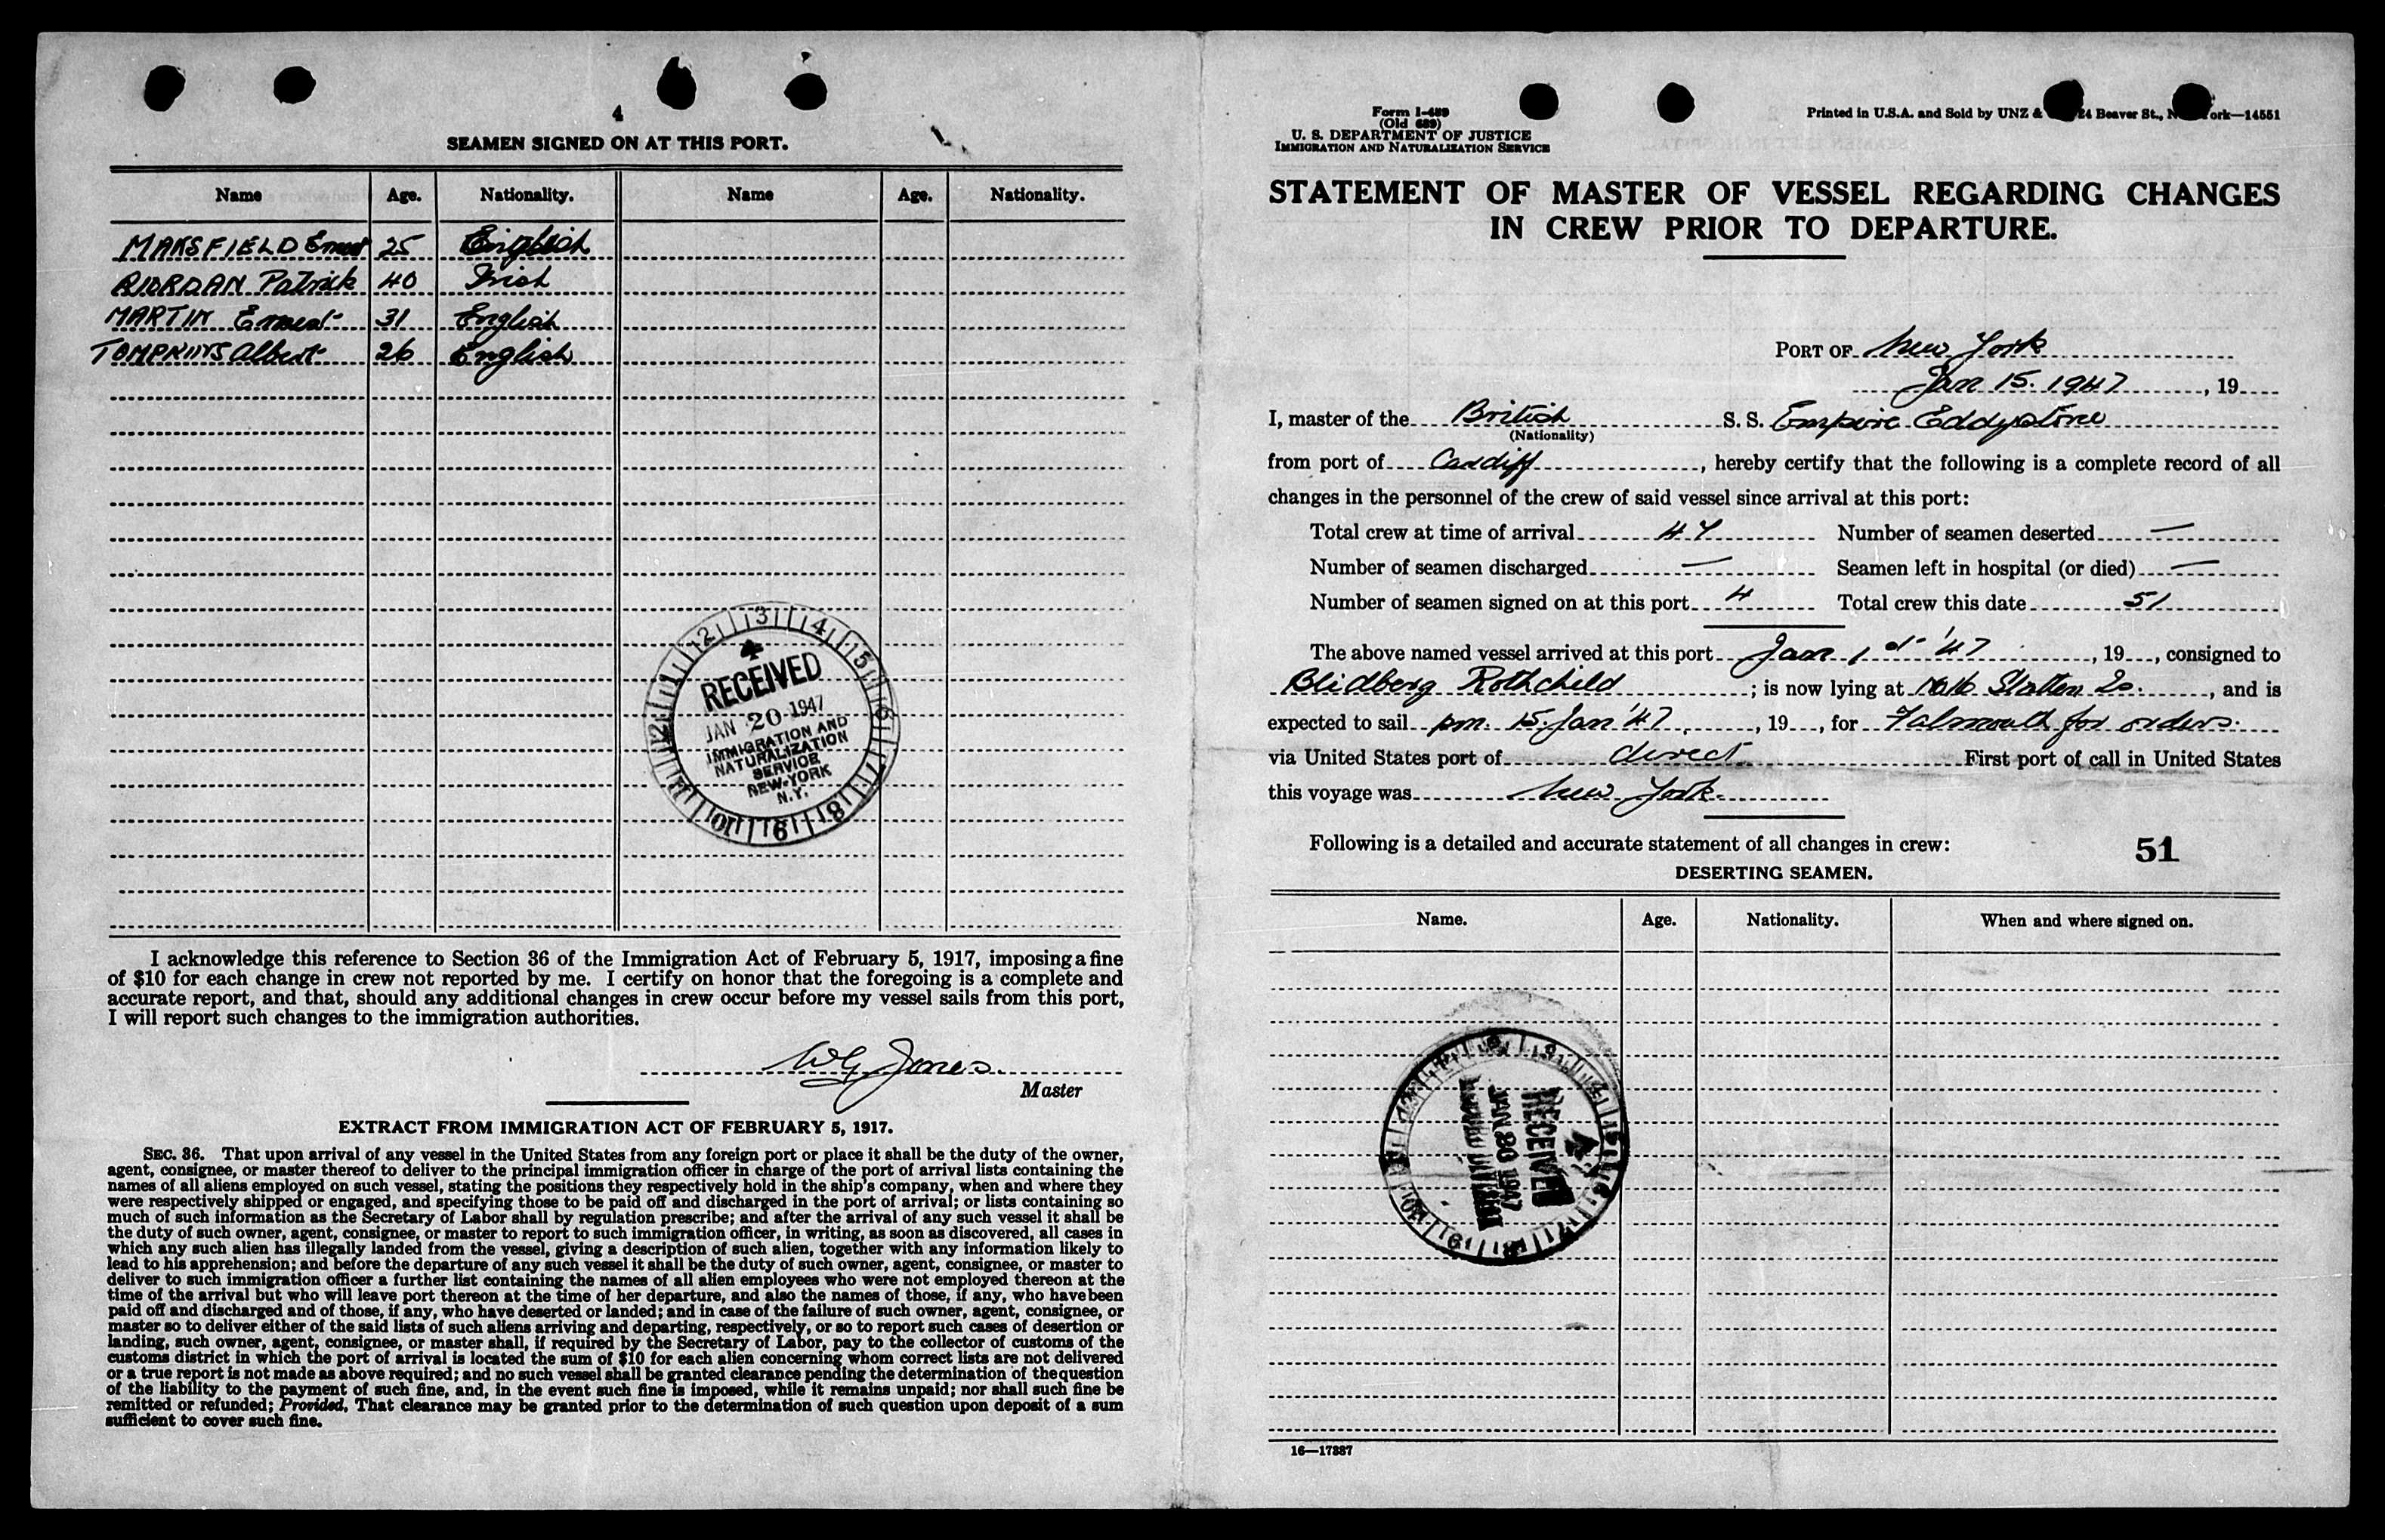 4
SEAMEN SIGNED ON AT THIS PORT.
Name Age. Nationality. Name Age. Nationality.
MAKSFIELD Ernest 25 English
RIORDAN Patrick 40 Irish
MARTIN Ernest 31 English
TOMPKINS Albert 26 English
RECEIVED
JAN 20 1947
IMMIGRATION AND
NATURALIZATION
SERVICE
NEW-YORK
N.Y.
I acknowledge this reference to Section 36 of the Immigration Act of February 5, 1917, imposing a fine
of $10 for each change in crew not reported by me. I certify on honor that the foregoing is a complete and
accurate report, and that, should any additional changes in crew occur before my vessel sails from this port,
I will report such changes to the immigration authorities.
WG Jones
Master
EXTRACT FROM IMMIGRATION ACT OF FEBRUARY 5, 1917.
SEC. 36. That upon arrival of any vessel in the United States from any foreign port or place it shall be the duty of the owner,
agent, consignee, or master thereof to deliver to the principal immigration officer in charge of the port of arrival lists containing the
names of all aliens employed on such vessel, stating the positions they respectively hold in the ship's company, when and where they
were respectively shipped or engaged, and specifying those to be paid off and discharged in the port of arrival; or lists containing so
much of such information as the Secretary of Labor shall by regulation prescribe; and after the arrival of any such vessel it shall be
the duty of such owner, agent, consignee, or master to report to such immigration officer, in writing, as soon as discovered, all cases in
which any such alien has illegally landed from the vessel, giving a description of such alien, together with any information likely to
lead to his apprehension; and before the departure of any such vessel it shall be the duty of such owner, agent, consignee, or master to
deliver to such immigration officer a further list containing the names of all alien employees who were not employed thereon at the
time of the arrival but who will leave port thereon at the time of her departure, and also the names of those, if any, who have been
paid off and discharged and of those, if any, who have deserted or landed; and in case of the failure of such owner, agent, consignee, or
master so to deliver either of the said lists of such aliens arriving and departing, respectively, or so to report such cases of desertion or
landing, such owner, agent, consignee, or master shall, if required by the Secretary of Labor, pay to the collector of customs of the
customs district in which the port of arrival is located the sum of $10 for each alien concerning whom correct lists are not delivered
or a true report is not made as above required; and no such vessel shall be granted clearance pending the determination of the question
of the liability to the payment of such fine, and, in the event such fine is imposed, while it remains unpaid; nor shall such fine be
remitted or refunded; Provided, That clearance may be granted prior to the determination of such question upon deposit of a sum
sufficient to cover such fine.
Form I-489
(Old 689)
U. S. DEPARTMENT OF JUSTICE
IMMIGRATION AND NATURALIZATION SERVICE
Printed in U.S.A. and Sold by UNZ & 24 Beaver St., N ork—14551
STATEMENT OF MASTER OF VESSEL REGARDING CHANGES
IN CREW PRIOR TO DEPARTURE.
PORT OF New York
Jan 15. 1947, 19
I, master of the British S. S. Empire Eddystone
(Nationality)
from port of Cardiff, hereby certify that the following is a complete record of all
changes in the personnel of the crew of said vessel since arrival at this port:
Total crew at time of arrival 47 Number of seamen deserted —
Number of seamen discharged — Seamen left in hospital (or died) —
Number of seamen signed on at this port 4 Total crew this date 51
The above named vessel arrived at this port Jan 1st '47, 19, consigned to
Blidberg Rothchild; is now lying at Is., and is
expected to sail pm. 15. Jan '47, 19, for Falmouth for orders.
via United States port of direct First port of call in United States
this voyage was New York.
Following is a detailed and accurate statement of all changes in crew: 51
DESERTING SEAMEN.
Name. Age. Nationality. When and where signed on.
RECEIVED
JAN 20 1947
16—17387